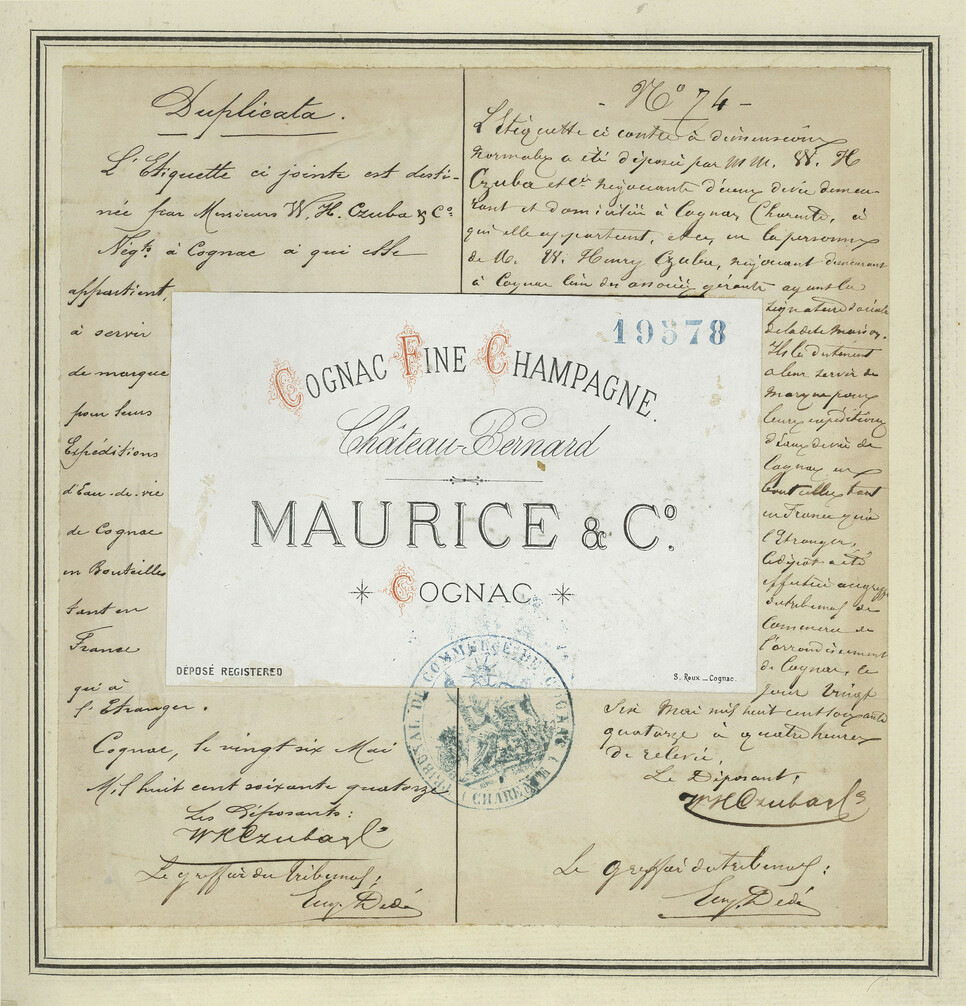 Duplicata.
L'Etiquette ci jointe est desti-
née par Messieurs W. H. Czuba & Cº
Négts à Cognac à qui elle
appartient,
à servir
de marque
pour leurs
Expéditions
d'Eau-de-vie
de Cognac
en Bouteilles
tant en
France
qu'à
l'Etranger.
Cognac, le vingt six Mai
Mil huit cent soixante quatorze
Les Déposants:
WHCzuba &Cº
Le greffier du tribunal;
Eug. Dedé
- Nº 74 -
L'Etiquette ci contre à dimensions
normales a été déposée par MM. W. H
Czuba et Cie négociants d'eaux de vie demeu-
rant et domiciliés à Cognac Charente, à
qui elle appartient, et ce, en la personne
de M. W. Henry Czuba, négociant demeurant
à Cognac l'un des associés gérants ayant la
signature sociale
de la dite maison,
Ils le destinent
à leur servir de
Marque pour
leurs expéditions
d'Eaux de vie de
Cognac en
bouteilles tant
en France qu'à
l'Etranger,
Ce dépôt a été
effectué au greffe
du tribunal de
Commerce de
l'arrondissement
de Cognac, le
jour Vingt
Six Mai mil huit cent soixante
quatorze à quatre heures
de relevée,
Le Déposant,
WHCzuba &Cº
Le greffier du tribunal:
Eug. Dedé
19578
COGNAC FINE CHAMPAGNE.
Château-Bernard
MAURICE & Cº.
COGNAC
DÉPOSÉ REGISTERED
S. Roux _ Cognac.
TRIBUNAL DE COMMERCE DE COGNAC
(CHARENTE)